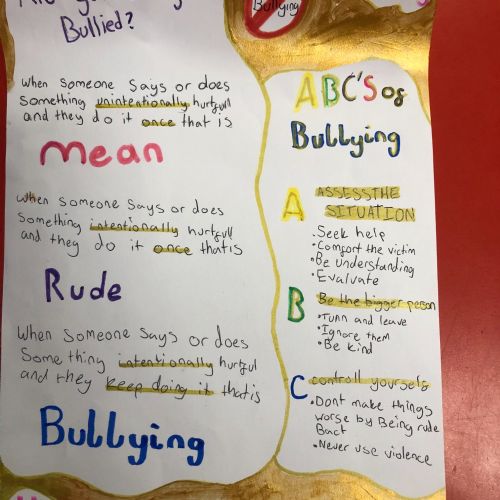 Bullied?
When someone says or does
something unintentionally hurtfull
and they do it once that is
Mean
When someone says or does
something intentionally hurtfull
and they do it once thatis
Rude
When someone says or does
Some thing intentionally hurtful
and they keep doing it thatis
Bullying
Bullying
ABC'S of
Bullying
A ASSESSTHE
SITUATION
•Seek help
•Comfort the victim
•Be understanding
•Evaluate
B Be the bigger person
•Turn and leave
•Ignore them
•Be kind
C controll yourself
•Dont make things
worse by Being rude
Bact
•Never use violence